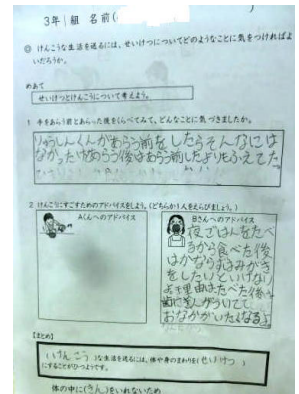 3年1組 名前(
◎ けんこうな生活を送るには、せいけつについてどのようなことに気をつければよ
いだろうか。
めあて
せいけつとけんこうについて考えよう。
1 手をあらう前とあらった後をくらべてみて、どんなことに気づきましたか。
あらう前
なかった あらう後はあらう前 よりもふえてた。
2 けんこうにすごすためのアドバイスをしよう。(どちらか1人をえらびましょう。)
Aくんへのアドバイス
Bさんへのアドバイス
夜ごはんをたべ
るから食べた後
はかならずはみがき
をしたいといけない
たべた後
歯に
おなかがいたくなるよ
【まとめ】
(けんこう)な生活を送るには、体や身のまわりを(せいけつ)
にすることがひつようです。
体の中に(きん)をいれないため